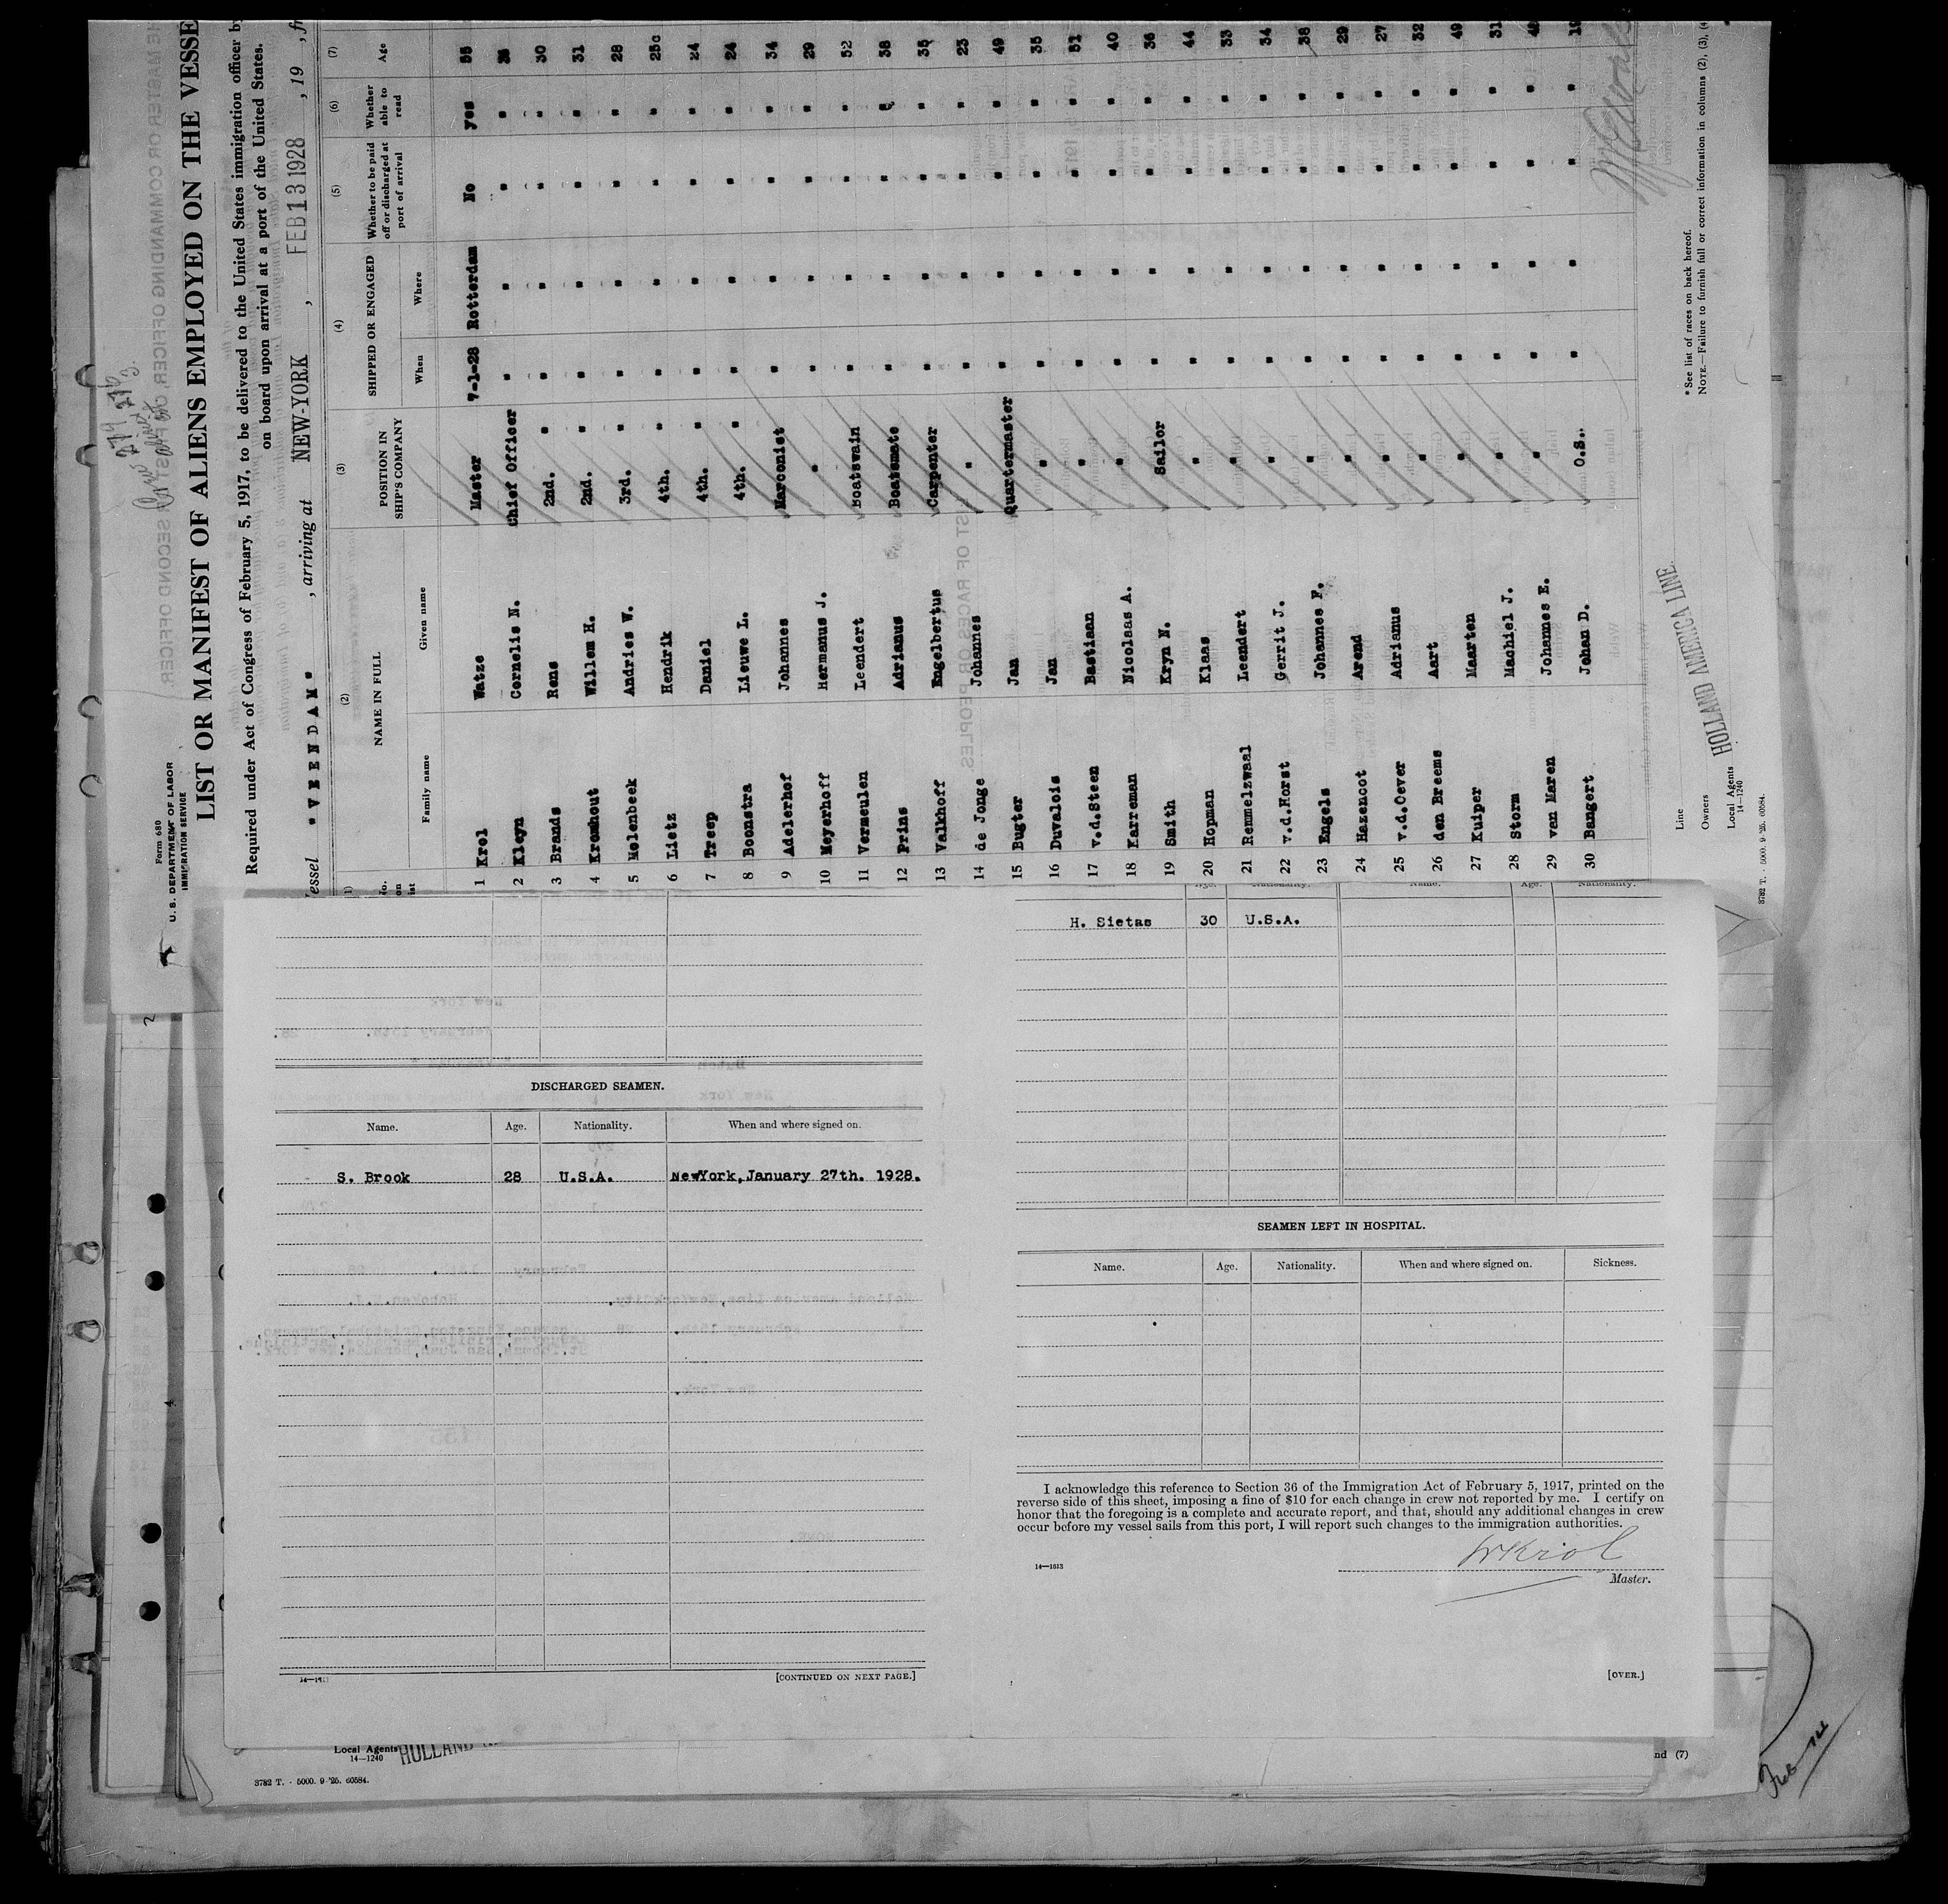 Form 680
U. S. DEPARTMENT OF LABOR
IMMIGRATION SERVICE
LIST OR MANIFEST OF ALIENS EMPLOYED ON THE VESSE
Required under Act of Congress of February 5, 1917, to be delivered to the United States immigration officer by
on board upon arrival at a port of the United States.
essel "VEENDAM" , arriving at NEW-YORK , FEB 13 1928 , 19 , fr
(2) (3) (4) (5) (6) (7)
NAME IN FULL POSITION IN SHIP'S COMPANY SHIPPED OR ENGAGED Whether to be paid off or discharged at port of arrival Whether able to read Age
Family name Given name When Where
1 Krol Watze Master 7-1-28 Rotterdam No yes 55
2 Kleyn Cornelis N. Chief Officer " " " "
3 Brands Rens 2nd. " " " " " 30
4 Kromhout Willem H. 2nd. " " " " " 31
5 Molenbeek Andries W. 3rd. " " " " " 28
6 Lietz Hendrik 4th. " " " " " 25
7 Treep Daniel 4th. " " " " " 24
8 Boonstra Lieuwe L. 4th. " " " " " 24
9 Adelerhof Johannes Marconist " " " " 34
10 Meyerhoff Hermanus J. " " " " " 29
11 Vermeulen Leendert Boatswain " " " " 52
12 Prins Adrianus Boatsmate " " " " 38
13 Valkhoff Engelbertus Carpenter " " " " 35
14 de Jonge Johannes " " " " " 23
15 Bugter Jan Quartermaster " " " " 49
16 Duvalois Jan " " " " " 35
17 v.d.Steen Bastiaan " " " " " 51
18 Karreman Nicolaas A. " " " " " 40
19 Smith Kryn N. Sailor " " " " 36
20 Hopman Klaas " " " " " 44
21 Remmelzwaal Leendert " " " " " 33
22 v.d.Horst Gerrit J. " " " " " 34
23 Engels Johannes F. " " " " " 38
24 Hazenoot Arend " " " " " 29
25 v.d.Oever Adrianus " " " " " 27
26 den Breems Aart " " " " " 32
27 Kuiper Maarten " " " " " 49
28 Storm Machiel J. " " " " " 31
29 van Maren Johannes E. " " " " "
30 Bangert Johan D. O.S. " " " " 19
Line
Owners
Local Agents HOLLAND AMERICA LINE.
14—1240
3782 T. 5000. 9-'25. 60584.
*See list of races on back hereof.
NOTE.—Failure to furnish full or correct information in columns (2), (3), (4
DISCHARGED SEAMEN.
Name. Age. Nationality. When and where signed on.
S. Brook 28 U.S.A. NewYork,January 27th. 1928.
[CONTINUED ON NEXT PAGE.]
Age. Nationality. Name. Age. Nationality.
H. Sietas 30 U.S.A.
SEAMEN LEFT IN HOSPITAL.
Name. Age. Nationality. When and where signed on. Sickness.
I acknowledge this reference to Section 36 of the Immigration Act of February 5, 1917, printed on the
reverse side of this sheet, imposing a fine of $10 for each change in crew not reported by me. I certify on
honor that the foregoing is a complete and accurate report, and that, should any additional changes in crew
occur before my vessel sails from this port, I will report such changes to the immigration authorities.
WKrol
14—1613
Master.
[OVER.]
Local Agents HOLLAND
14—1240
3782 T. - 5000. 9-'25. 60584.
nd (7)
Feb 14